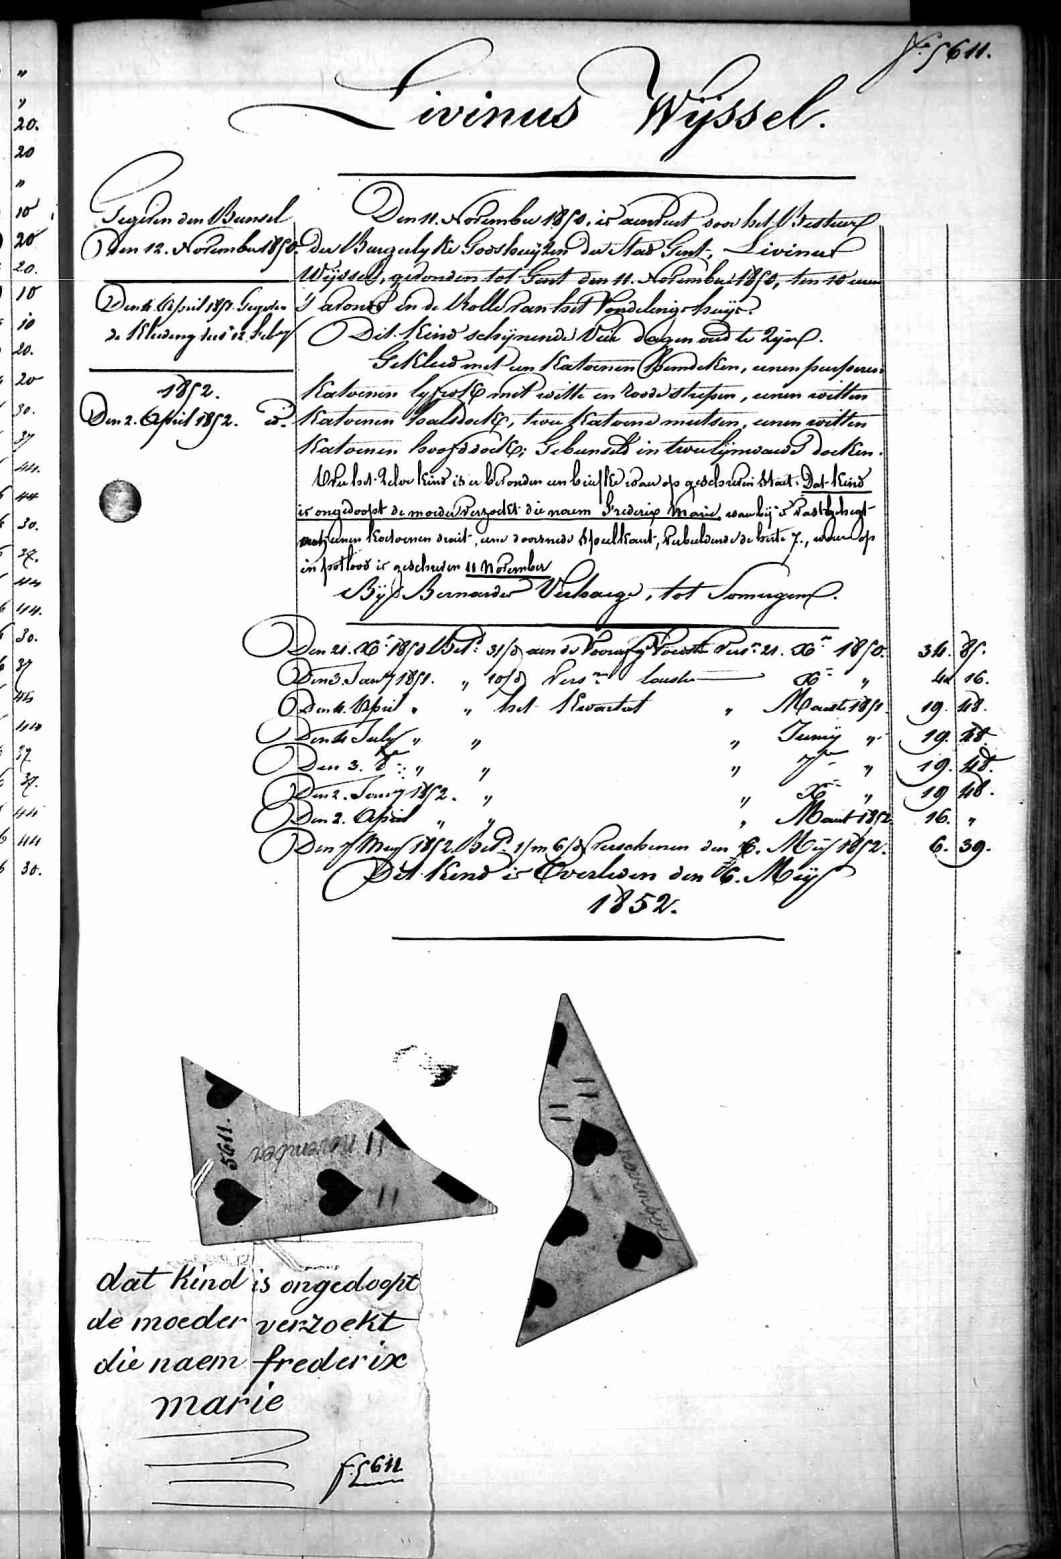 N° 5611.
Livinus Wijssel.
Gegeven den Bunsel
Den 12. November 1850.
Den 4 April 1851. Gegeven
de Kleeding
1852.
Den 2. April 1852. id.
Den 11. November 1850, is aenveert door het Bestuer
der Burgerlyke Godshuijzen der Stad Gent, Livinus
Wijssel, gevonden tot Gent den 11. November 1850, ten 10 uren
's avonds in de Rolle van het Vondelingshuijs.
Dit Kind schijnende dagen oud te zijn.
Gekleed met een Katoenen Hemdeken, eenen purperen
Katoenen lyfrok met witte en roode strepen, eenen witten
Katoenen halsdoek, twee Katoene mutsen, eenen witten
Katoenen hoofddoek; Gebunseld in twee lijnwaed doeken.
Over het zelve Kind is er bevonden een briefke waer op geschreven staet: Dat Kind
is ongedoopt de moeder verzoekt die naem Frederix Marie, waer bij vastgehegt
met eenen Katoenen draet, eene doorsnede Speelkaart, verbeeldende de herte 7., waer op
in potlood is geschreven 11 November
Bij Bernardus Verhaege, tot Somergem.
Den 21. Xb 1850 Bet. 31/ aen de Voorafg Voedster Vers. 21. Xr 1850. 34. 85.
Den 3. Jany 1851. " 10/ Vers. Xr " 4. 16.
Den 4. April " " het Kwartael " Maart 1851. 19. 48.
Den 4 July " " " Junij " 19. 48
Den 3. 8r " " " 7r " 19. 48.
Den 2. Jany 1852. " " Xr " 19. 48.
Den 2. April " " " Maart 1852 16. "
Den 7 Mey 1852 Bet. 1/m 6/d Verschenen den 6. Mey 1852. 6. 39.
Dit Kind is Overleden den 6. Mey
1852.
5611.
11 November
11
11
11
november
dat kind is ongedoopt
de moeder verzoekt
die naem frederix
marie
f. 5611